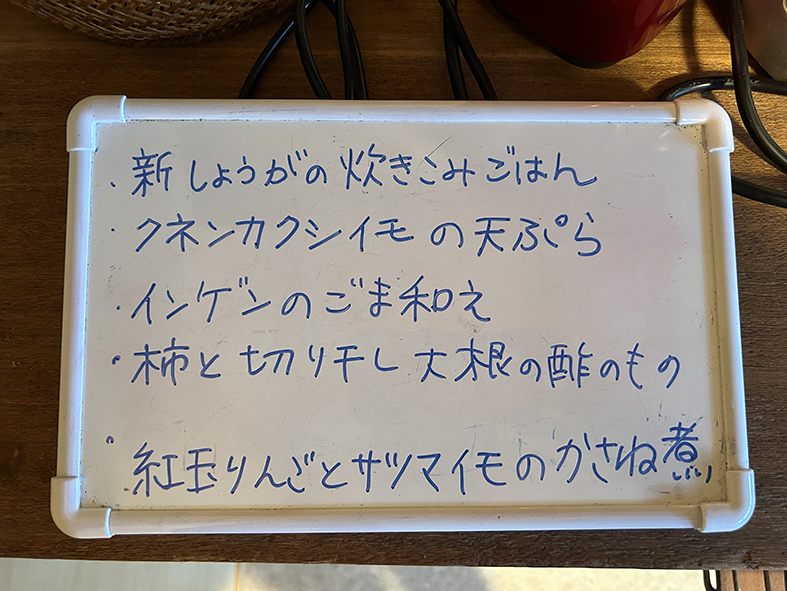 ・新しょうがの炊きこみごはん
・クネンカクシイモの天ぷら
・インゲンのごま和え
・柿と切り干し大根の酢のもの
・紅玉りんごとサツマイモのかさね煮